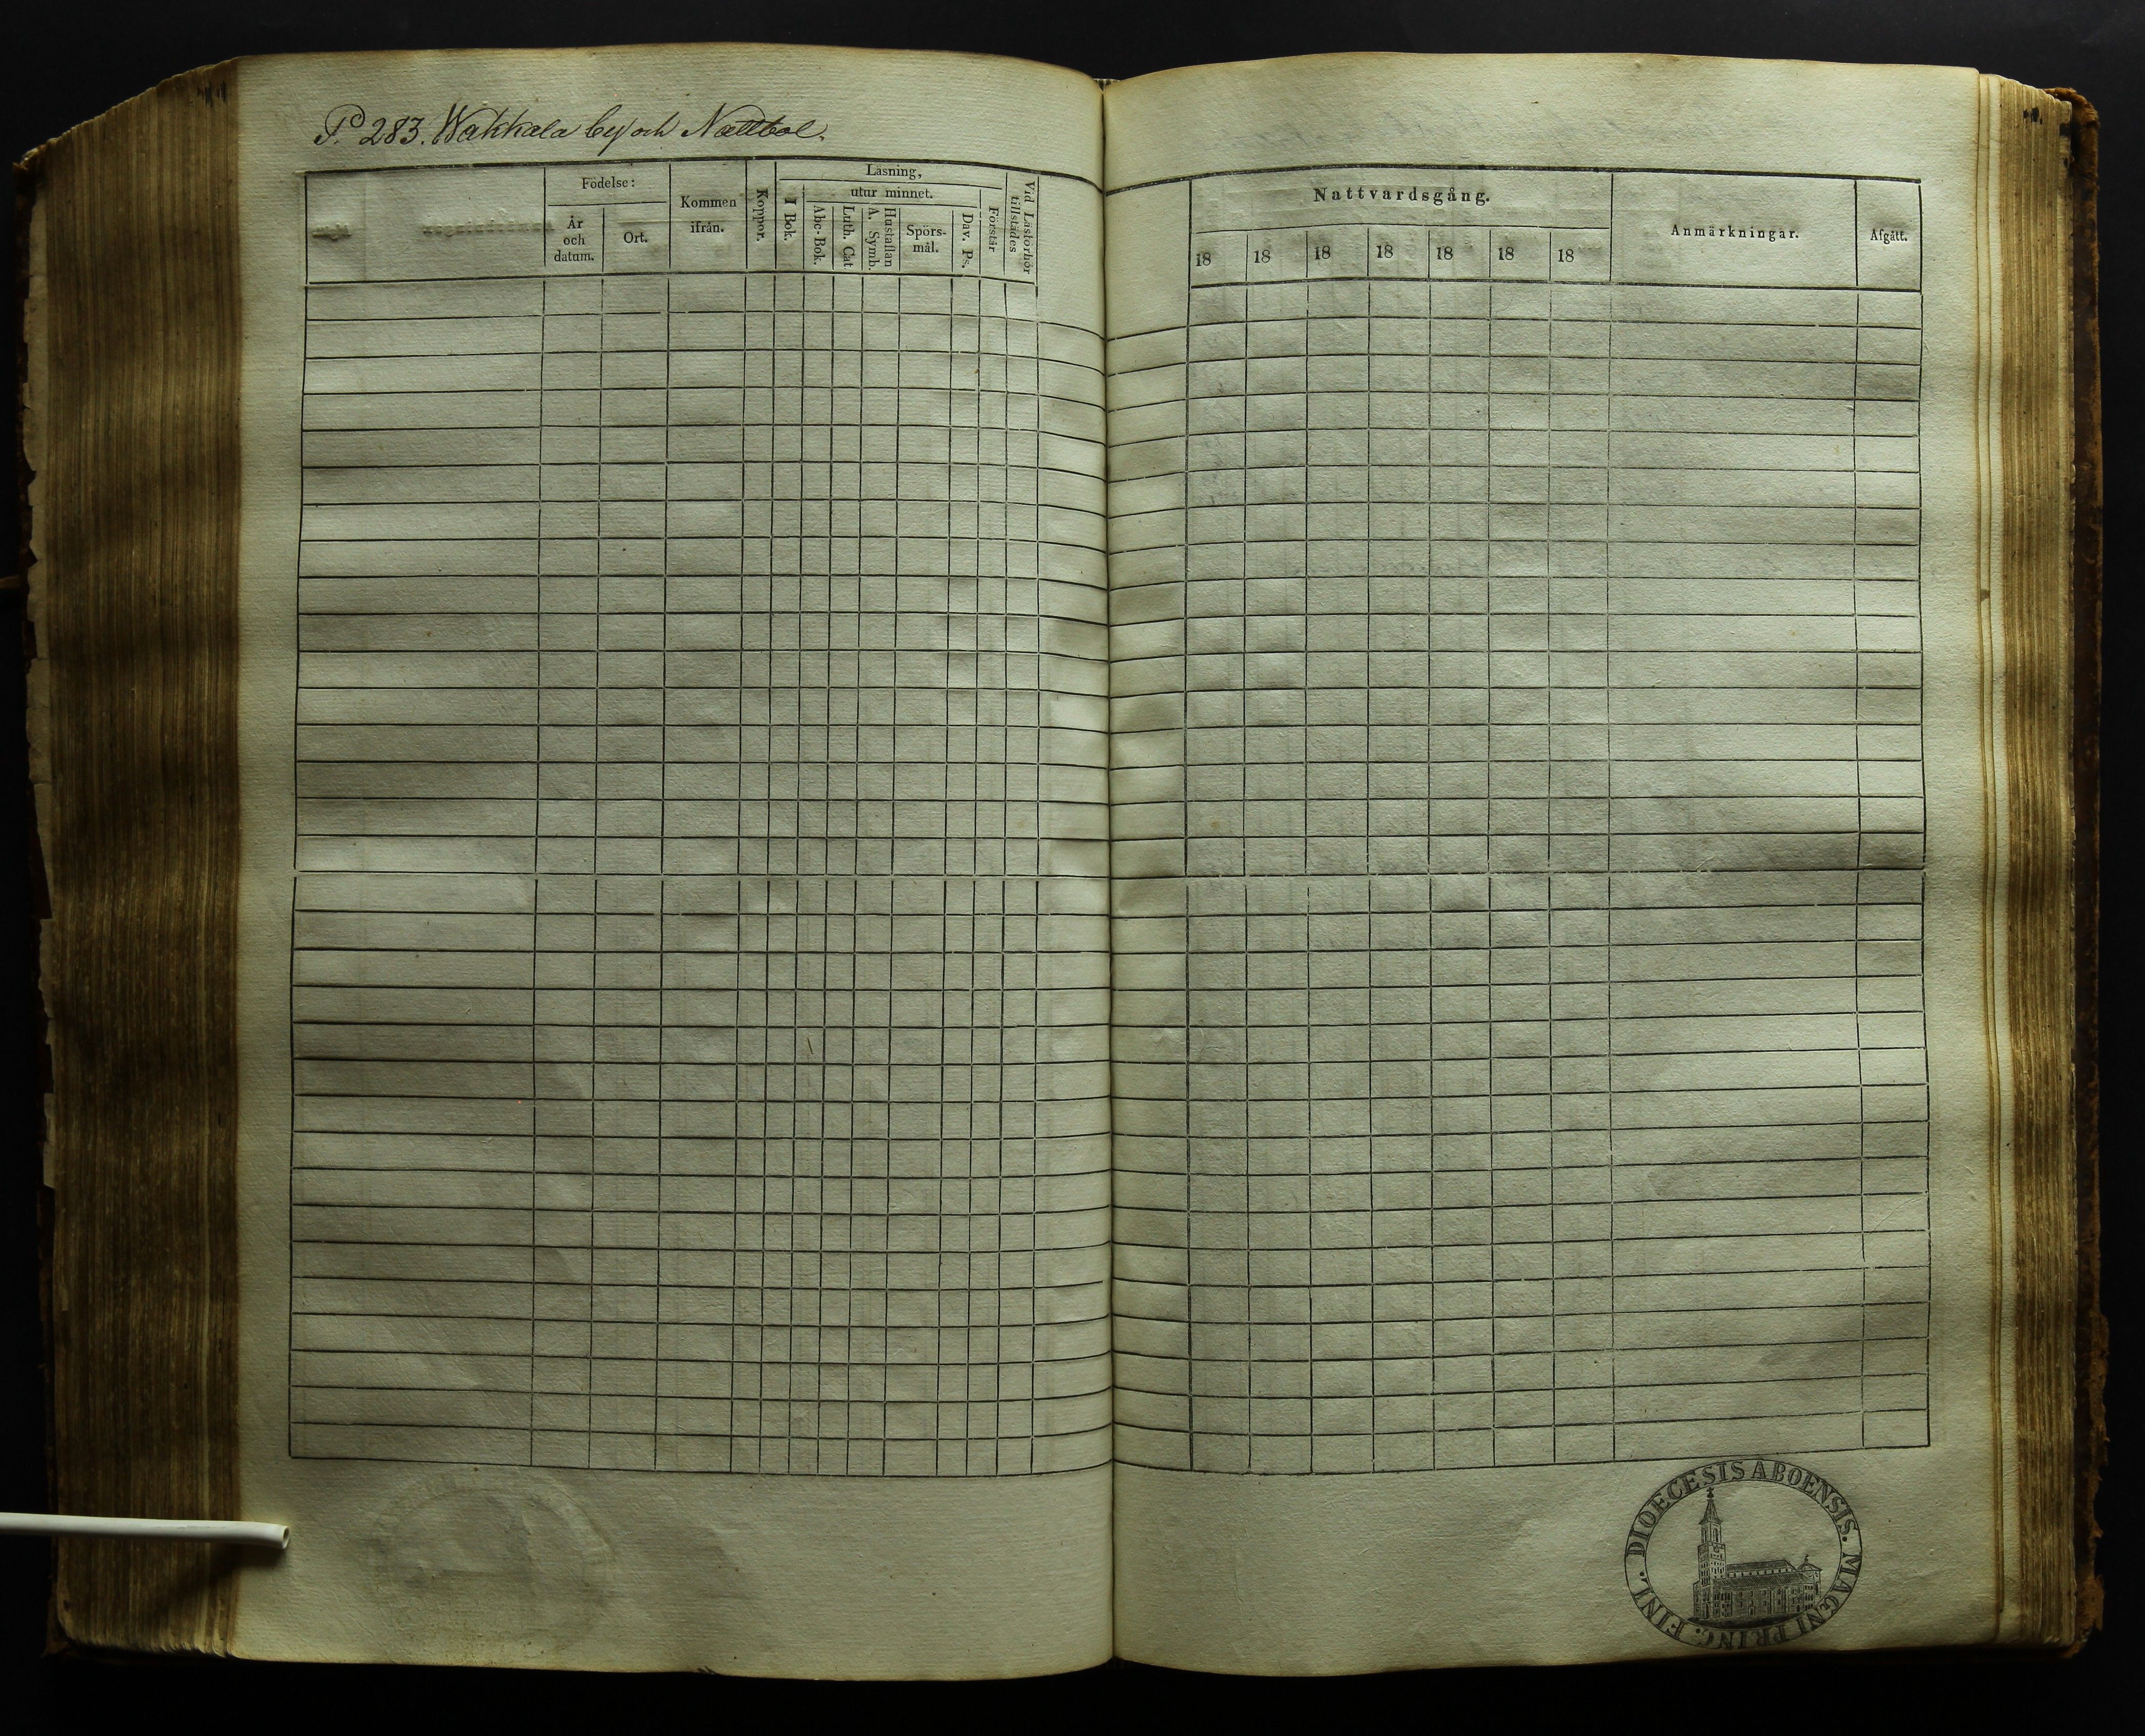 P. 283. Wakkala by och Nattbol.
Födelse:
År
och
datum.
Ort.
Kommen
ifrån.
Koppor.
Läsning,
I Bok.
utur minnet.
Abc-Bok.
Luth. Cat
Hustaflan
A. Symb.
Spörs-
mål.
Dav. Ps.
Förstår
Vid Läsförhör
tillstädes
Nattvardsgång.
18 18 18 18 18 18 18
Anmärkningar.
Afgått.
DIOECESIS ABOENSIS. MAGNI PRINC. FINL.